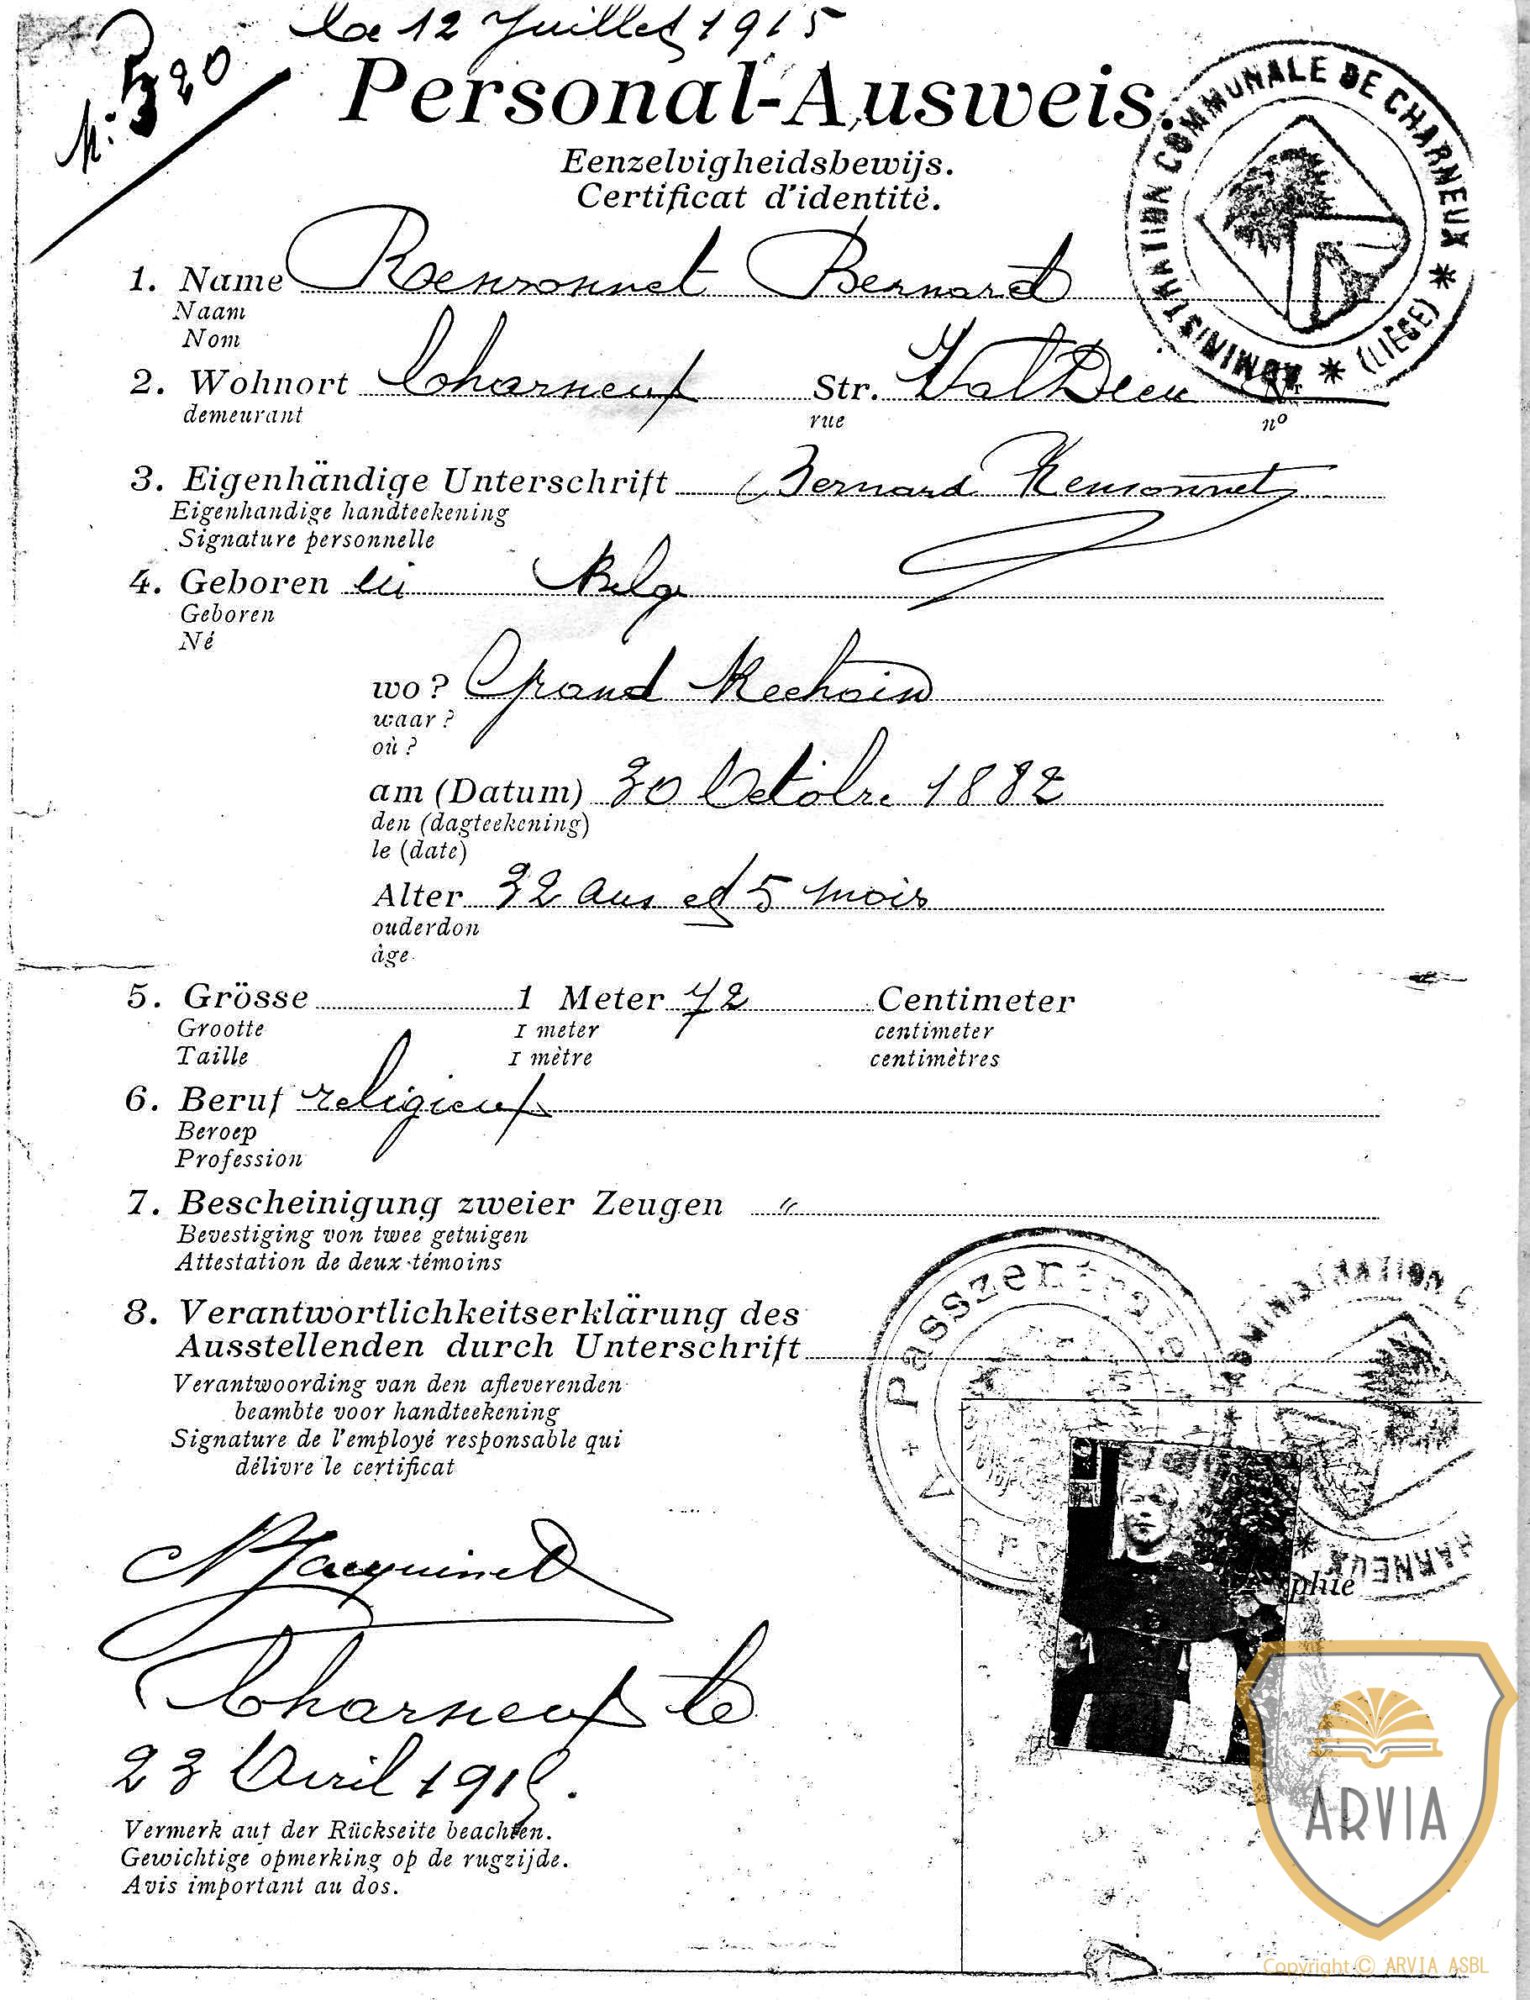 Le 12 Juillet 1915
N: 520
Personal-Ausweis.
Eenzelvigheidsbewijs.
Certificat d'identité.
ADMINISTRATION COMMUNALE DE CHARNEUX * (LIÈGE) *
1. Name Rensonnet Bernard
Naam
Nom
2. Wohnort Charneux Str. Val Dieu Nr
demeurant rue nº
3. Eigenhändige Unterschrift Bernard Rensonnet
Eigenhandige handteekening
Signature personnelle
4. Geboren Belge
Geboren
Né
wo? Grand Rechain
waar?
où?
am (Datum) 30 Octobre 1882
den (dagteekening)
le (date)
Alter 32 ans et 5 mois
ouderdon
âge
5. Grösse 1 Meter 72 Centimeter
Grootte 1 meter centimeter
Taille 1 mètre centimètres
6. Beruf religieux
Beroep
Profession
7. Bescheinigung zweier Zeugen "
Bevestiging von twee getuigen
Attestation de deux témoins
8. Verantwortlichkeitserklärung des
Ausstellenden durch Unterschrift
Verantwoording van den afleverenden
beambte voor handteekening
Signature de l'employé responsable qui
délivre le certificat
Passzentrale
ADMINISTRATION C
HARNEUX
phie
Jacquinet
Charneux le
23 Avril 1915.
Vermerk auf der Rückseite beachten.
Gewichtige opmerking op de rugzijde.
Avis important au dos.
ARVIA
Copyright © ARVIA ASBL